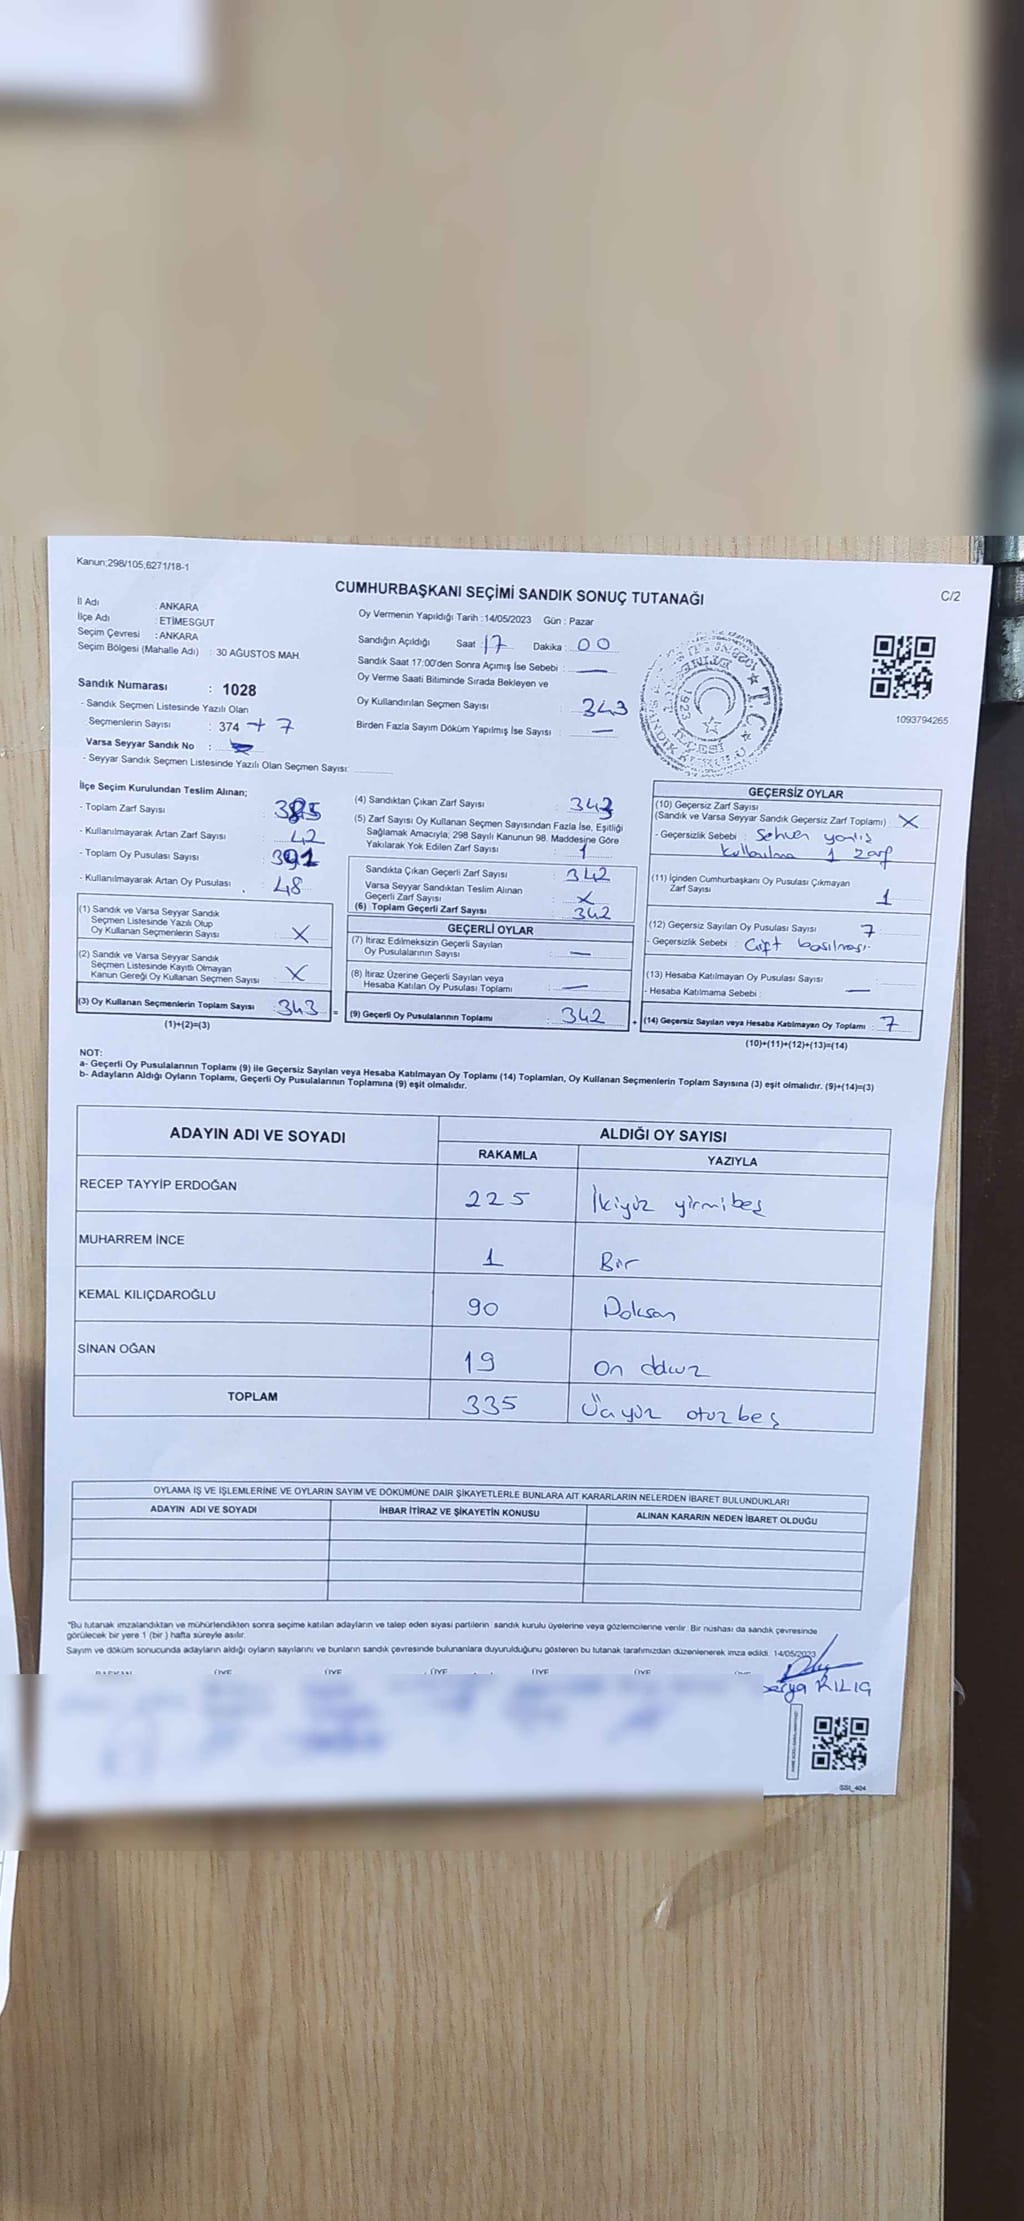 Kanun;298/105,6271/18-1
CUMHURBAŞKANI SEÇİMİ SANDIK SONUÇ TUTANAĞI
C/2
İl Adı : ANKARA
İlçe Adı : ETİMESGUT
Seçim Çevresi : ANKARA
Seçim Bölgesi (Mahalle Adı) : 30 AĞUSTOS MAH.
Sandık Numarası : 1028
- Sandık Seçmen Listesinde Yazılı Olan
Seçmenlerin Sayısı : 374 + 7
Varsa Seyyar Sandık No :
- Seyyar Sandık Seçmen Listesinde Yazılı Olan Seçmen Sayısı:
Oy Vermenin Yapıldığı Tarih : 14/05/2023 Gün : Pazar
Sandığın Açıldığı Saat : 17 Dakika : 00
Sandık Saat 17:00'den Sonra Açımış İse Sebebi : —
Oy Verme Saati Bitiminde Sırada Bekleyen ve
Oy Kullandırılan Seçmen Sayısı : 343
Birden Fazla Sayım Döküm Yapılmış İse Sayısı : —
T.C.
1923
1093794265
İlçe Seçim Kurulundan Teslim Alınan;
- Toplam Zarf Sayısı 385
- Kullanılmayarak Artan Zarf Sayısı 42
- Toplam Oy Pusulası Sayısı 391
- Kullanılmayarak Artan Oy Pusulası 48
(1) Sandık ve Varsa Seyyar Sandık
Seçmen Listesinde Yazılı Olup
Oy Kullanan Seçmenlerin Sayısı X
(2) Sandık ve Varsa Seyyar Sandık
Seçmen Listesinde Kayıtlı Olmayan
Kanun Gereği Oy Kullanan Seçmen Sayısı X
(3) Oy Kullanan Seçmenlerin Toplam Sayısı 343 =
(1)+(2)=(3)
(4) Sandıktan Çıkan Zarf Sayısı 343
(5) Zarf Sayısı Oy Kullanan Seçmen Sayısından Fazla İse, Eşitliği
Sağlamak Amacıyla; 298 Sayılı Kanunun 98. Maddesine Göre
Yakılarak Yok Edilen Zarf Sayısı : 1
Sandıkta Çıkan Geçerli Zarf Sayısı 342
Varsa Seyyar Sandıktan Teslim Alınan
Geçerli Zarf Sayısı X
(6) Toplam Geçerli Zarf Sayısı 342
GEÇERLİ OYLAR
(7) İtiraz Edilmeksizin Geçerli Sayılan
Oy Pusulalarının Sayısı —
(8) İtiraz Üzerine Geçerli Sayılan veya
Hesaba Katılan Oy Pusulası Toplamı —
(9) Geçerli Oy Pusulalarının Toplamı 342 +
GEÇERSİZ OYLAR
(10) Geçersiz Zarf Sayısı
(Sandık ve Varsa Seyyar Sandık Geçersiz Zarf Toplamı) X
- Geçersizlik Sebebi : Sehven yanlış
kullanılma 1 zarf
(11) İçinden Cumhurbaşkanı Oy Pusulası Çıkmayan
Zarf Sayısı 1
(12) Geçersiz Sayılan Oy Pusulası Sayısı 7
- Geçersizlik Sebebi : Çift basılması.
(13) Hesaba Katılmayan Oy Pusulası Sayısı —
- Hesaba Katılmama Sebebi :
(14) Geçersiz Sayılan veya Hesaba Katılmayan Oy Toplamı 7
(10)+(11)+(12)+(13)=(14)
NOT:
a- Geçerli Oy Pusulalarının Toplamı (9) ile Geçersiz Sayılan veya Hesaba Katılmayan Oy Toplamı (14) Toplamları, Oy Kullanan Seçmenlerin Toplam Sayısına (3) eşit olmalıdır. (9)+(14)=(3)
b- Adayların Aldığı Oyların Toplamı, Geçerli Oy Pusulalarının Toplamına (9) eşit olmalıdır.
ADAYIN ADI VE SOYADI
ALDIĞI OY SAYISI
RAKAMLA YAZIYLA
RECEP TAYYİP ERDOĞAN 225 İkiyüz yirmibeş
MUHARREM İNCE 1 Bir
KEMAL KILIÇDAROĞLU 90 Doksan
SİNAN OĞAN 19 on dokuz
TOPLAM 335 Üçyüz otuz beş
OYLAMA İŞ VE İŞLEMLERİNE VE OYLARIN SAYIM VE DÖKÜMÜNE DAİR ŞİKAYETLERLE BUNLARA AİT KARARLARIN NELERDEN İBARET BULUNDUKLARI
ADAYIN ADI VE SOYADI İHBAR İTİRAZ VE ŞİKAYETİN KONUSU ALINAN KARARIN NEDEN İBARET OLDUĞU
*Bu tutanak imzalandıktan ve mühürlendikten sonra seçime katılan adayların ve talep eden siyasi partilerin sandık kurulu üyelerine veya gözlemcilerine verilir. Bir nüshası da sandık çevresinde
görülecek bir yere 1 (bir ) hafta süreyle asılır.
Sayım ve döküm sonucunda adayların aldığı oyların sayılarını ve bunların sandık çevresinde bulunanlara duyurulduğunu gösteren bu tutanak tarafımızdan düzenlenerek imza edildi. 14/05/2023
BAŞKAN ÜYE ÜYE ÜYE ÜYE ÜYE ÜYE
KILIÇ
SSI_404